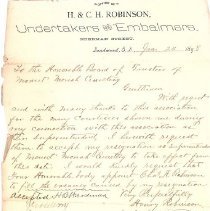 H. & C. H. ROBINSON,
Undertakers and Embalmers,
Jan 28 1895
To the Honorable Board of Trustees of
Mount Moriah Cemetery
Gentlemen
With regret
and with many thanks to this association
for the many Courtesies shown me during
my connection with this association as
their Superintendent, I herewith request
them to accept my resignation as Superintendent
of Mount Moriah Cemetery to take effect from
this date. I would kindly request that
your Honorable body appoint Chas H. Robinson
to fill the vacancy caused by my resignation
Accepted
Respectfully
Henry Robinson